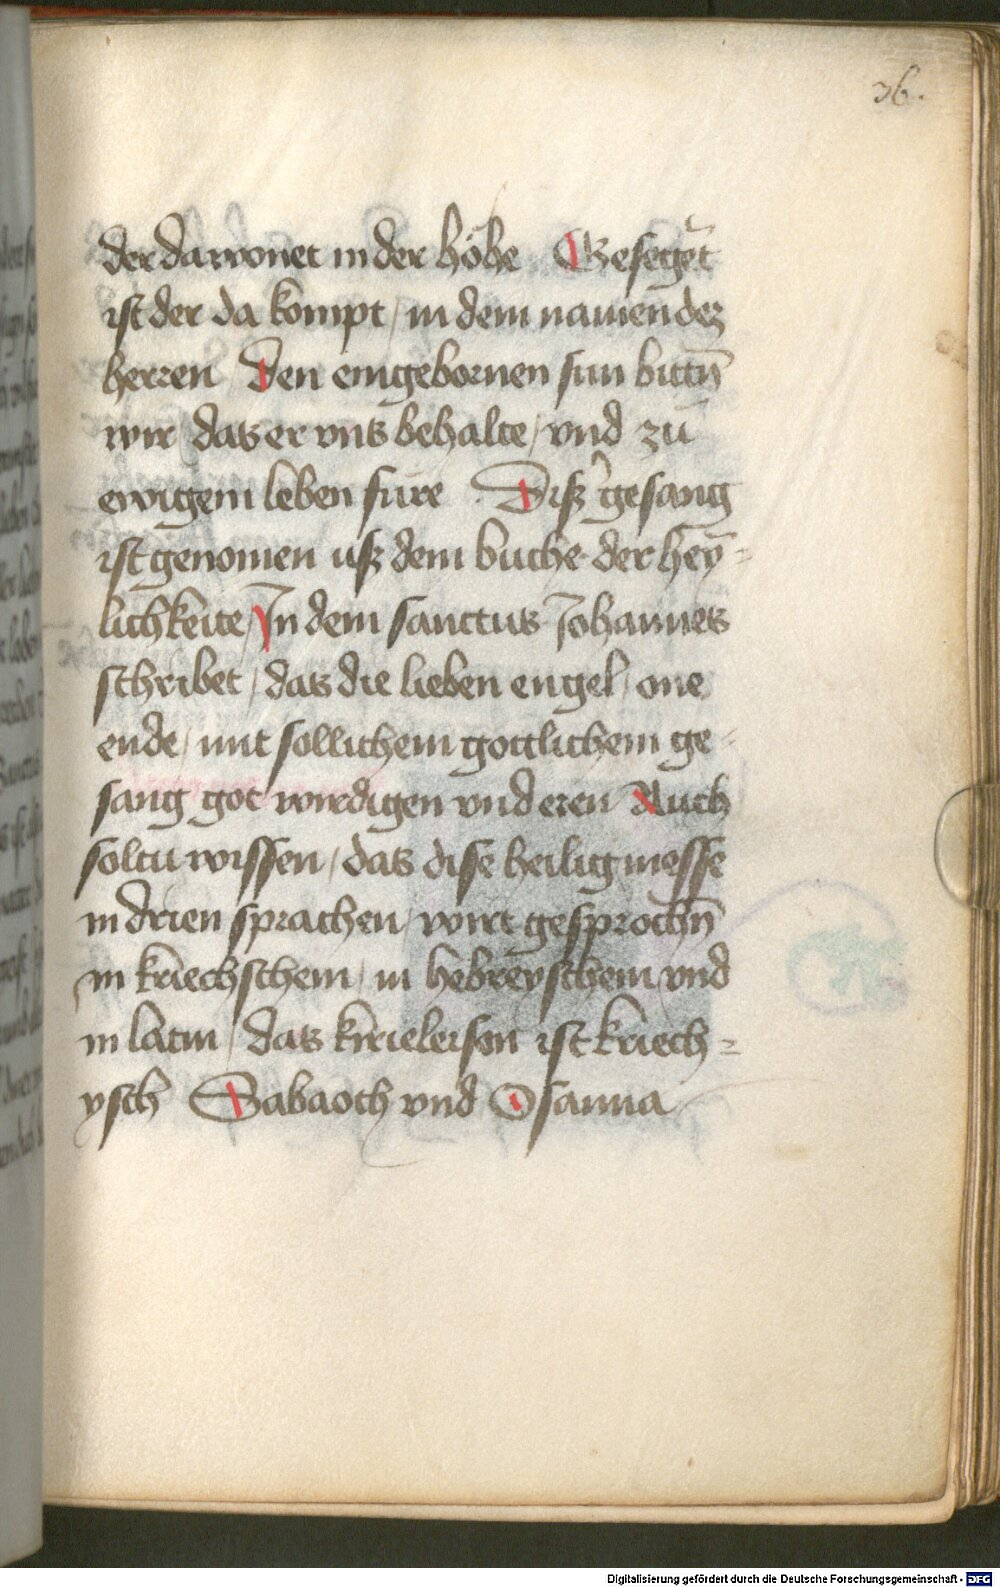 36.
der da wonet in der höhe Gesegēt
ist der da kompt / in dem namen dez
herren Den eingebornen sun bittn̄
wir / das er vns behalte / vnd zů
ewigem leben fűre Disz gesang
ist genomen usz dem buche der hey=
lichkeite / In dem sanctus Johannes
schribet / das die lieben engel / one
ende / mit sollichem gottlichem ge=
sang got wirdigen vnd eren Auch
soltu wissen / das dise heilig messe
in drien sprachen / wirt gesprochn̄
in kriechschem / in hebreyschem / vnd
in latin / das kirieleison ist kriech=
ysch Sabaoth vnd Osanna
Digitalisierung gefördert durch die Deutsche Forschungsgemeinschaft - DFG